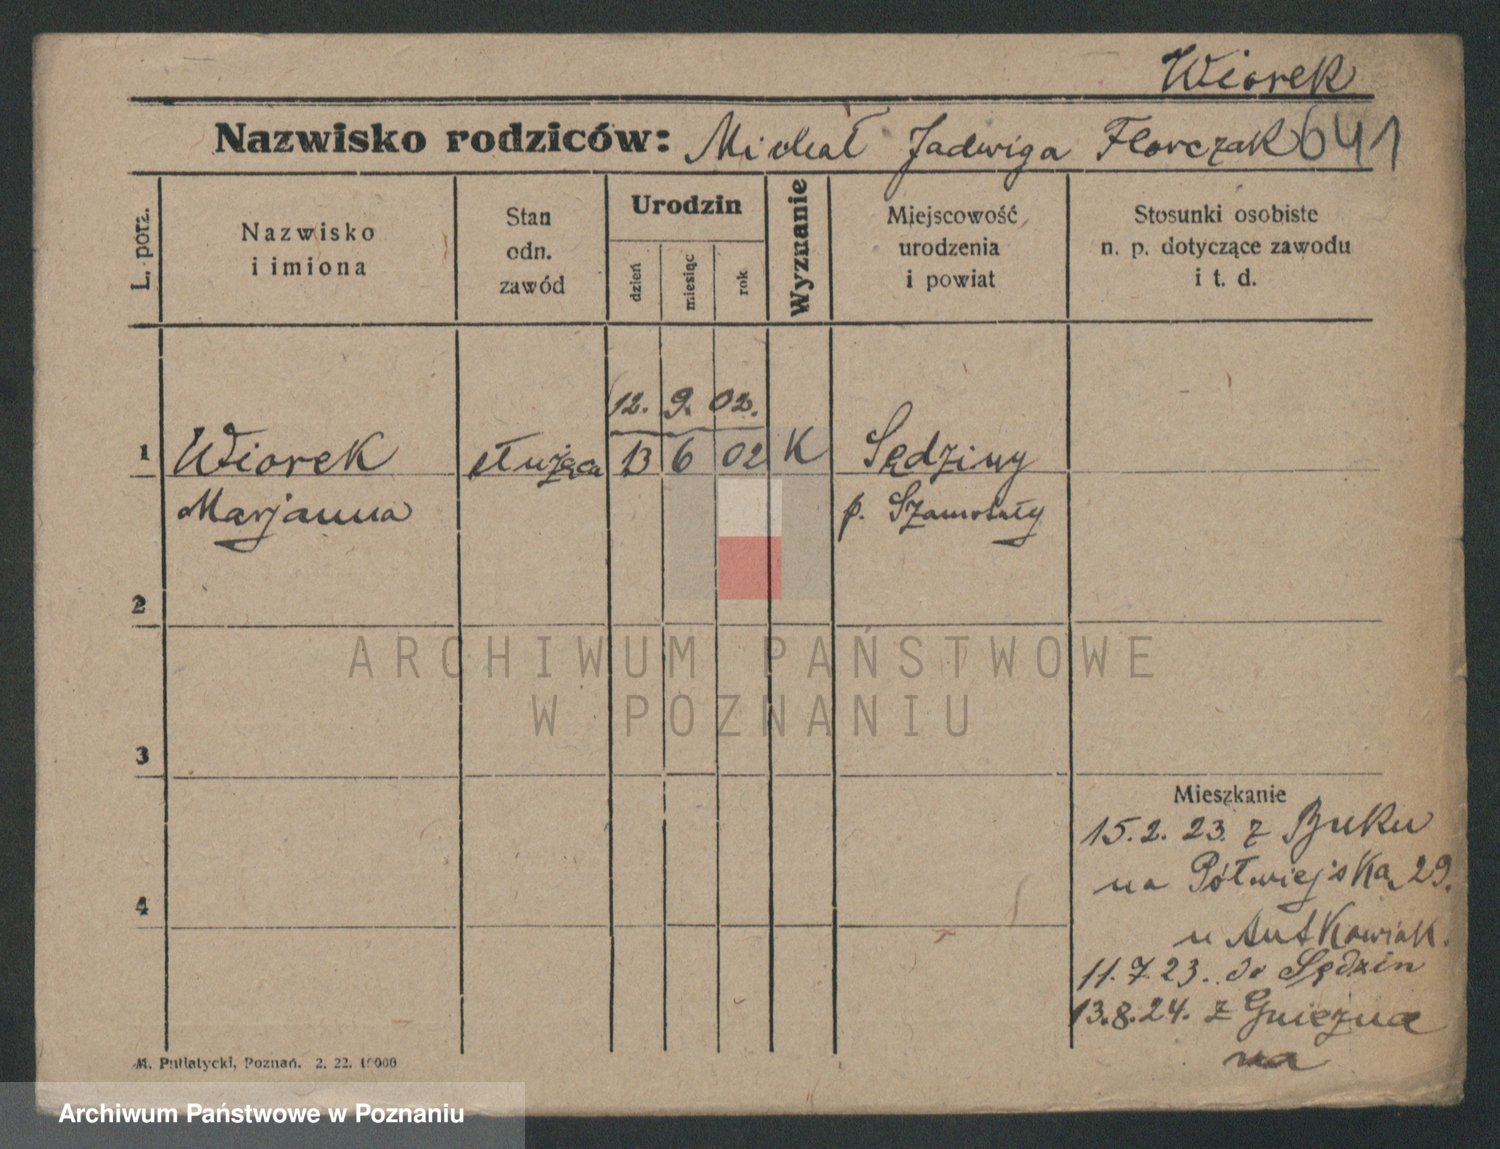 Wiorek
Nazwisko rodziców: Michał Jadwiga Florczak 641
L. porz.
Nazwisko
i imiona
Stan
odn.
zawód
Urodzin
dzień
miesiąc
rok
Wyznanie
Miejscowość
urodzenia
i powiat
Stosunki osobiste
n. p. dotyczące zawodu
i t. d.
12. 9. 02.
1 Wiorek służąca 13 6 02 K Sędziny
Marjanna p. Szamotuły
2
3
Mieszkanie
15.2.23. z Buku
na Półwiejska 29.
4
u Antkowiak.
11.7.23. do Sędzin
13.8.24. z Gniezna
na
M. Putiatycki, Poznań. 2. 22. 10000
ARCHIWUM PAŃSTWOWE
W POZNANIU
Archiwum Państwowe w Poznaniu